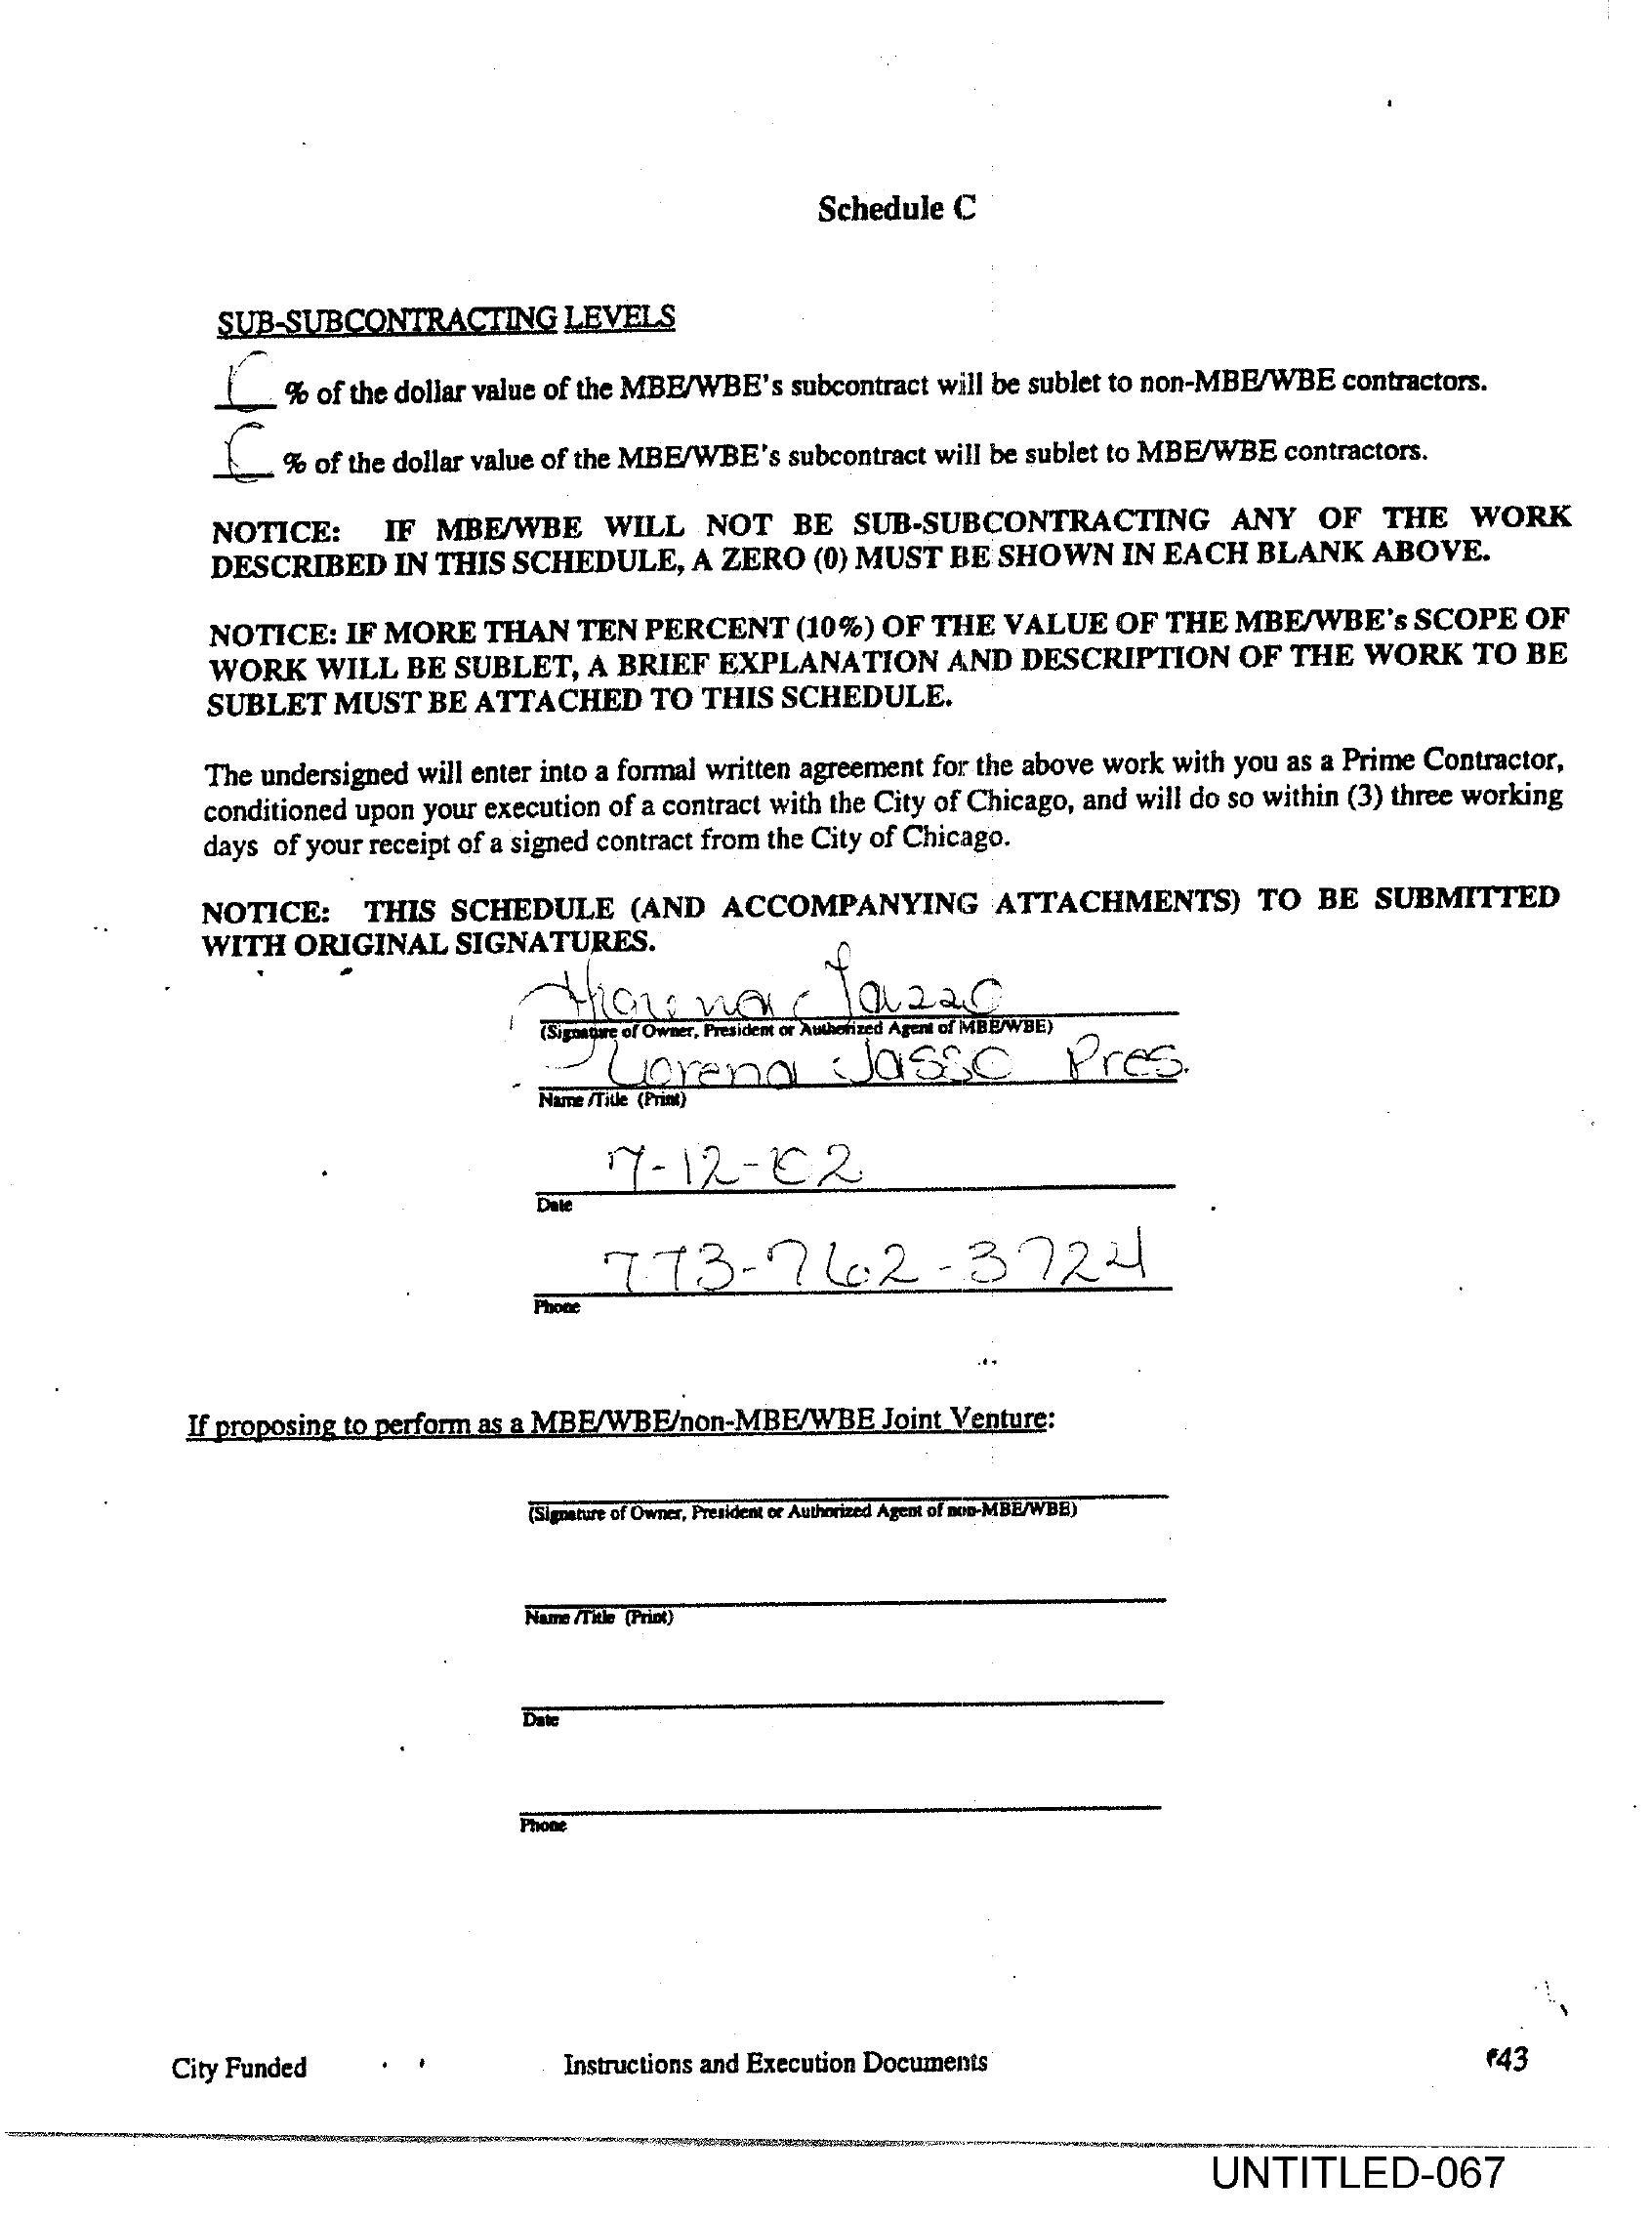 Schedule C
SUB-SUBCONTRACTING LEVELS
% of the dollar value of the MBE/WBE's subcontract will be sublet to non-MBE/WBE contractors.
% of the dollar value of the MBE/WBE's subcontract will be sublet to MBE/WBE contractors.
NOTICE: IF MBE/WBE WILL NOT BE SUB-SUBCONTRACTING ANY OF THE WORK
DESCRIBED IN THIS SCHEDULE, A ZERO (0) MUST BE SHOWN IN EACH BLANK ABOVE.
NOTICE: IF MORE THAN TEN PERCENT (10%) OF THE VALUE OF THE MBE/WBE's SCOPE OF
WORK WILL BE SUBLET, A BRIEF EXPLANATION AND DESCRIPTION OF THE WORK TO BE
SUBLET MUST BE ATTACHED TO THIS SCHEDULE.
The undersigned will enter into a formal written agreement for the above work with you as a Prime Contractor,
conditioned upon your execution of a contract with the City of Chicago, and will do so within (3) three working
days of your receipt of a signed contract from the City of Chicago.
NOTICE: THIS SCHEDULE (AND ACCOMPANYING ATTACHMENTS) TO BE SUBMITTED
WITH ORIGINAL SIGNATURES.
(Signature of Owner, President or Authorized Agent of MBE/WBE)
Lorena Jasso Pres.
Name /Title (Print)
7-12-02
Date
773-762-3724
Phone
If proposing to perform as a MBE/WBE/non-MBE/WBE Joint Venture:
(Signature of Owner, President or Authorized Agent of non-MBE/WBE)
Name /Title (Print)
Date
Phone
City Funded Instructions and Execution Documents 43
UNTITLED-067